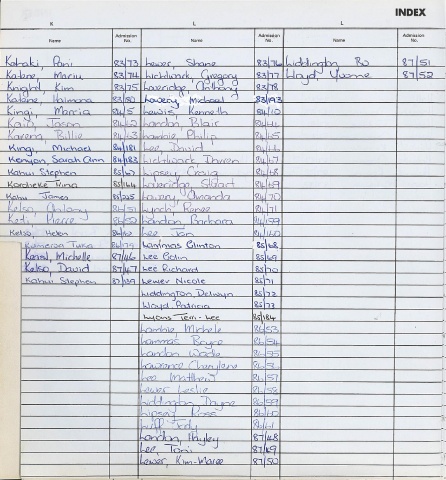 INDEX
K L L
Name Admission No. Name Admission No. Name Admission No.
Kahaki, Pani 83/73 Lewer, Shane 83/76 Liddington Bo 87/51
Katene, Maru 83/74 Lichtwark, Gregory 83/77 Lloyd, Yvonne 87/52
Knight, Kim 83/75 Loveridge, Anthony 83/78
Katene, 83/80 Lavery, Michael 83/193
Kingi, Marcia 84/5 Lewis, Kenneth 84/10
Jason 84/62 Landon Blair 84/41
Kareng, Billie 84/63 Lambie, Philip 84/65
Kingi, Michael 84/181 Lee, David 84/66
Kenyon, Sarah Ann 84/183 Lichtwark, Darren 84/67
Kahui Stephen 85/67 Lipsey, Craig 84/68
Tuna 85/164 Loveridge, Stuart 84/69
Kahu James 85/205 Lavery, Amanda 84/70
Kelso, 86/51 Lynch, Renee 84/71
Pierre 86/52 Landon, Barbara 84/159
Kelso, Helen Lee, Jan 84/160
Tuna Lammas Clinton 85/68
Michelle 87/46 Lee Colin 85/69
Kelso, David 87/47 Lee Richard 85/70
Kahui Stephen 87/129 Lewer Nicole 85/71
Liddington Delwyn 85/72
Lloyd, Patricia 85/73
Lyons Terri-Lee 85/184
Lambie, Michele 86/53
Lammas, Royce 86/54
Landon Wade 86/55
Lawrence Cherylene 86/56
Lee Matthew 86/57
Lewer Leslie 86/58
Liddington, Dayne 86/59
Lipsey Ross 86/60
Luff Judy 86/61
Landon, Hayley 87/48
Lee, Toni 87/49
Lewer, Kim-Maree 87/50